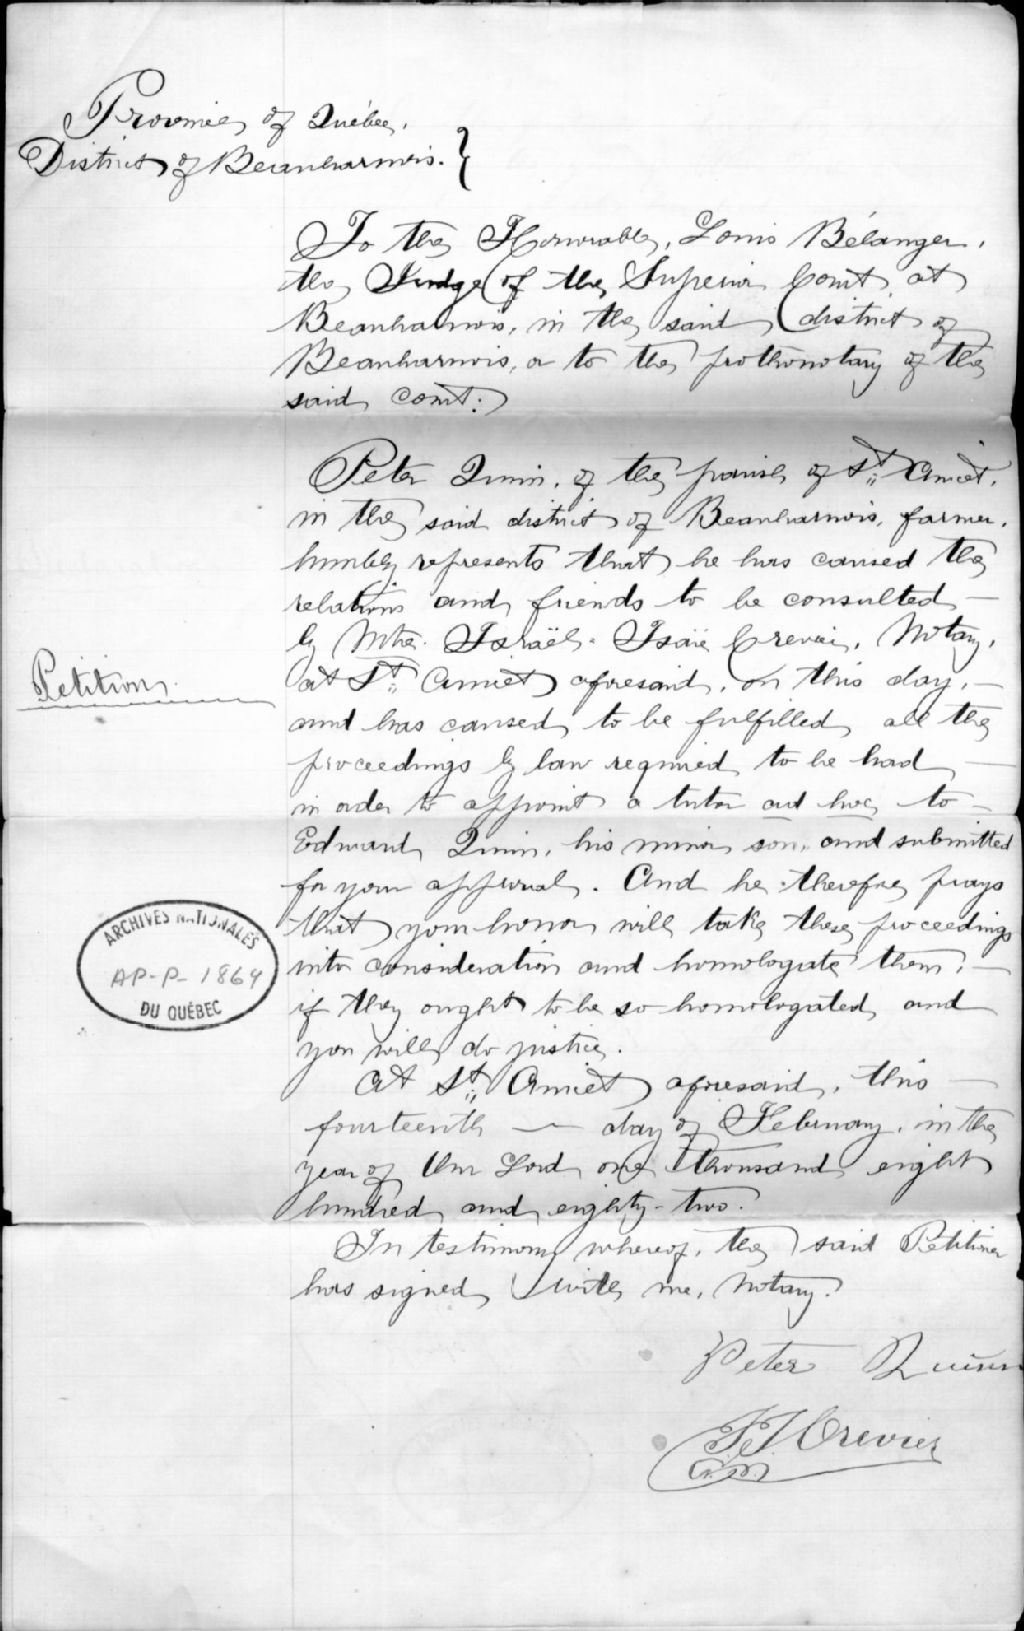 Province of Québec,
District of Beauharnois. }
To the Honorable, Louis Bélanger,
the Judge of the Superior Court at
Beauharnois, in the said district of
Beauharnois, or to the prothonotary of the
said court:
Peter Quinn, of the parish of St. Anicet,
in the said district of Beauharnois, farmer,
humbly represents that he has caused the
relations and friends to be consulted —
by Mtre. Israël-Isaïe Crevier, Notary,
Petition.
at St. Anicet aforesaid, on this day, —
and has caused to be fulfilled all the
proceedings by law required to be had —
in order to appoint a tutor ad hoc to —
Edward Quinn, his minor son, and submitted
for your approval. And he therefore prays
that your honor will take these proceedings
into consideration and homologate them, —
if they ought to be so homologated, and
you will do justice.
ARCHIVES NATIONALES
AP-P-1864
DU QUÉBEC
At St. Anicet aforesaid, this —
fourteenth — day of February, in the
year of Our Lord one thousand eight
hundred and eighty-two.
In testimony whereof, the said Petitioner
has signed with me, Notary.
Peter Quinn
I. I. Crevier
N. P.